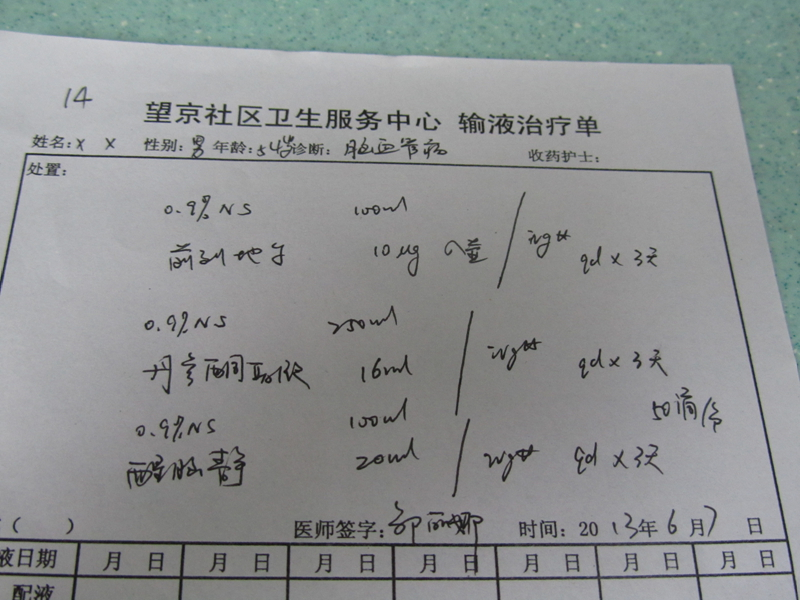 14
望京社区卫生服务中心 输液治疗单
姓名:x x 性别:男 年龄:54岁 诊断:脑血管病 收药护士:
处置:
0.9%NS 100ml
前列地尔 10μg 入壶 / ivgtt qd x 3天
0.9%NS 250ml
丹参酮取液 16ml / ivgtt qd x 3天
0.9%NS 100ml 50滴/分
醒脑静 20ml / ivgtt qd x 3天
( ) 医师签字: 时间:2013年6月7日
液日期 月 日 月 日 月 日 月 日 月 日 月 日 月
配液